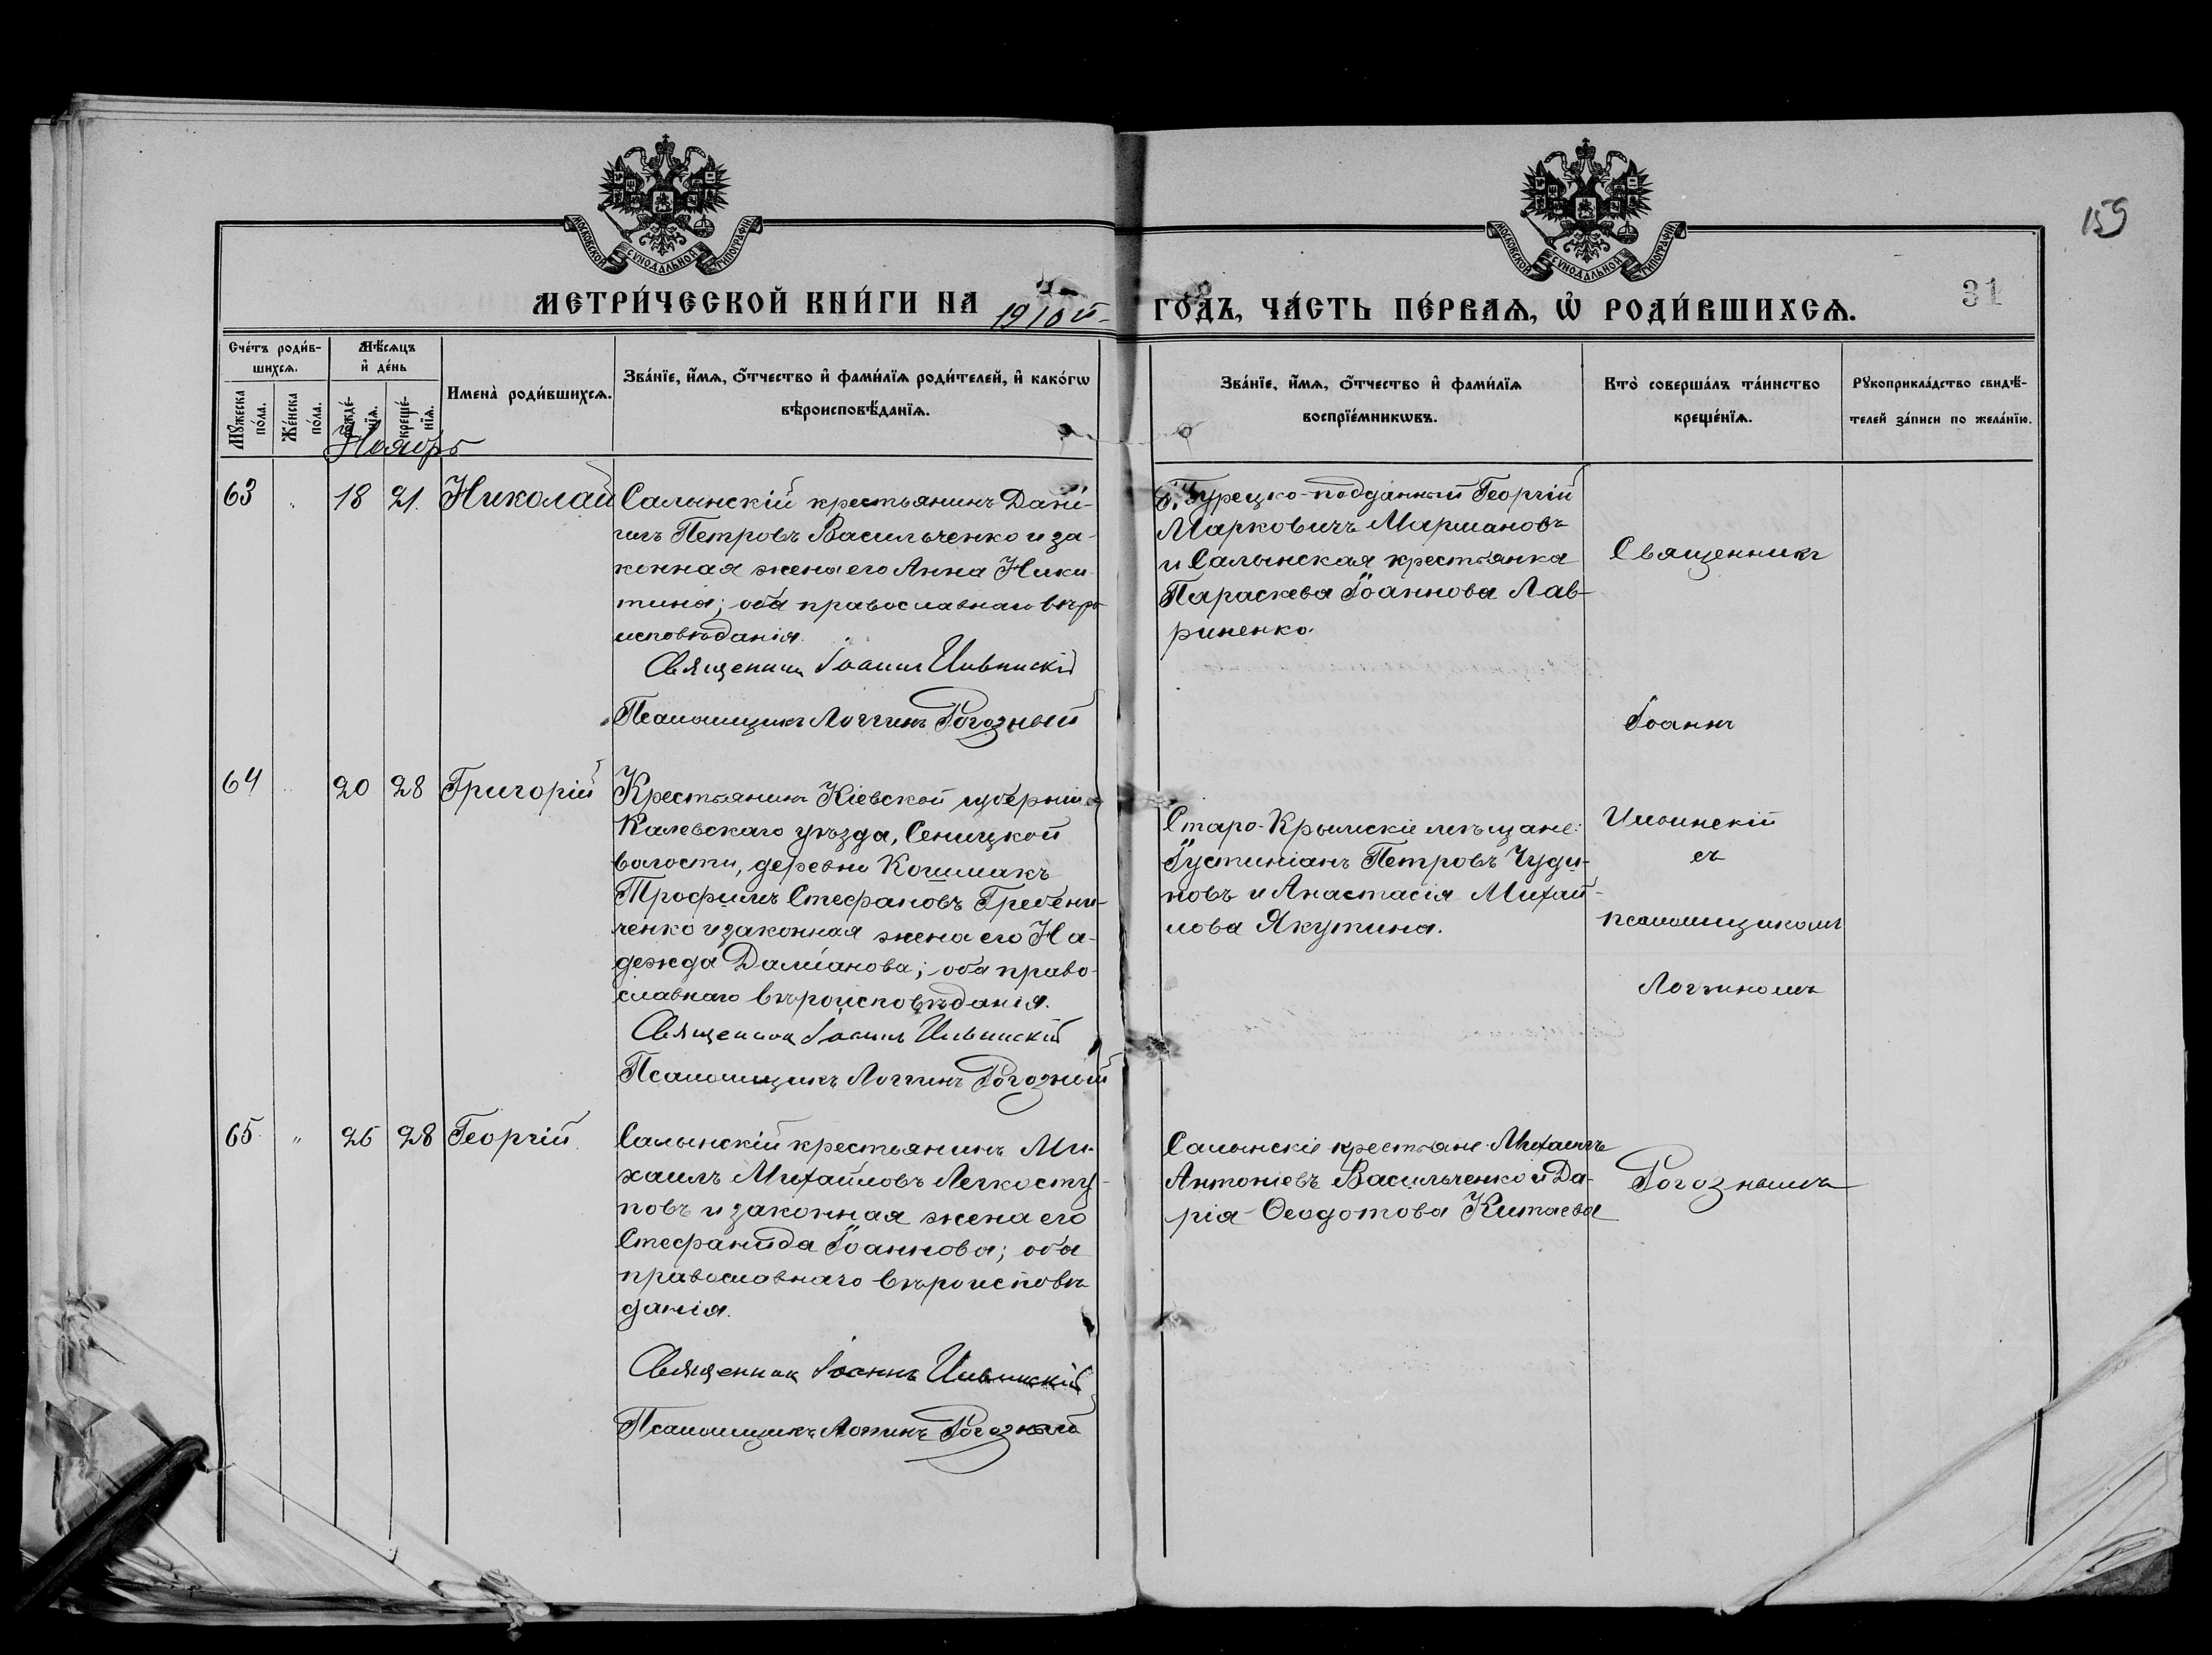 159
МОСКОВСКОЙ СѴНОДАЛЬНОЙ ТИПОГРАФІИ
МОСКОВСКОЙ СѴНОДАЛЬНОЙ ТИПОГРАФІИ
МЕТРИ́ЧЕСКОЙ КНИ́ГИ НА 1910й ГО́ДЪ, ЧА́СТЬ ПЕ́РВАѦ, Ѡ҆ РОДИ́ВШИХСѦ.
31
Сче́тъ роди́в-
шихсѧ.
Мѣ́сѧцъ
и҆ де́нь
Мꙋ́жеска по́ла.
Же́нска по́ла.
рожде́-
нїѧ.
креще́-
нїѧ.
Имена̀ роди́вшихсѧ.
Зва́нїе, и҆́мѧ, ѻ҆́тчество и҆ фами́лїѧ роди́телей, и҆ како́гѡ
вѣроисповѣ́данїѧ.
Зва́нїе, и҆́мѧ, ѻ҆́тчество и҆ фами́лїѧ
воспрїе́мникѡвъ.
Кто̀ соверша́лъ та́инство
креще́нїѧ.
Рꙋкоприкла́дство свидѣ́-
телей за́писи по жела́нїю.
Ноябрь
63 " 18 21. Николай
Салынскій крестьянинъ Дани-
илъ Петровъ Васильченко и за-
конная жена его Анна Ники-
тина; оба православнаго вѣро-
исповѣданія.
Священникъ Іоаннъ
Псаломщикъ Логгинъ Рогозный
Турецко-подданный Георгій
Марковичъ Маршановъ
и Салынская крестьянка
Параскева Іоаннова Лав-
риненко.
Священникъ
Іоаннъ
64 " 20 28 Григорій
Крестьянинъ Кіевской губерніи
Каневскаго уѣзда, Сеницкой
волости, деревни
Трофимъ Стефановъ Гребени-
ченко и законная жена его На-
дежда Даміанова; оба право-
славнаго вѣроисповѣданія.
Священникъ Іоаннъ
Псаломщикъ Логгинъ Рогозный
Старо-Крымскіе мѣщане:
Іустиніанъ Петровъ Чуди-
новъ и Анастасія Михай-
лова Якутина.
съ
псаломщикомъ
Логгиномъ
65 " 26 28 Георгій
Салынскій крестьянинъ Ми-
хаилъ Михайловъ Легкосту-
повъ и законная жена его
Стефанида Іоаннова; оба
православнаго вѣроисповѣ-
данія.
Священникъ Іоаннъ
Псаломщикъ Логгинъ Рогозный
Салынскіе крестьяне Михаилъ
Антоніевъ Васильченко и Да-
рія Ѳеодотова Китаева
Рогознымъ